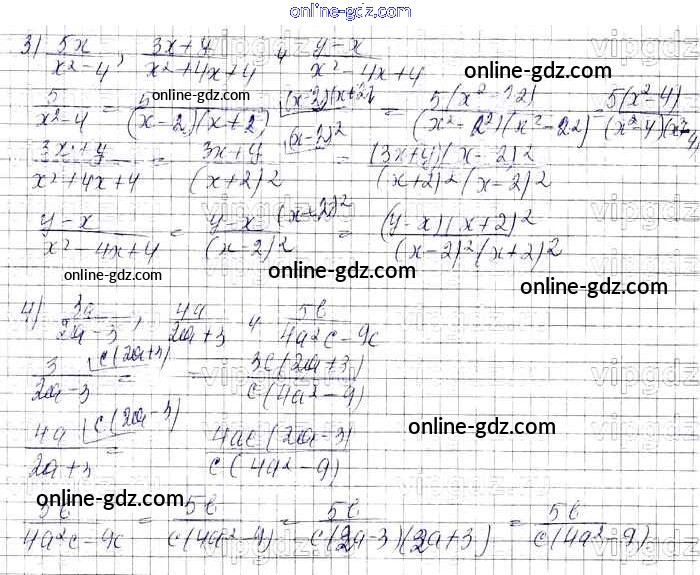 online-gdz.com
3) 5x/(x²-4), (3x+4)/(x²+4x+4) и (y-x)/(x²-4x+4)
online-gdz.com
online-gdz.com
5/(x²-4) = 5/((x-2)(x+2)) (x-2)(x+2) = 5(x²-)/((x²-2²)(x²-22)) 5(x²-4)/((x²-4)(x²-4))
(3x+y)/(x²+4x+4) = (3x+y)/(x+2)2 (x-2)² = (3x+y)(x-2)2/((x+2)2(x-2)2)
(y-x)/(x²-4x+4) = (y-x)/(x-2)2 (x+2)² = (y-x)(x+2)2/((x-2)2(x+2)2)
online-gdz.com
online-gdz.com
online-gdz.com
4) 3a/(2a-3), 4a/(2a+3) и 5b/(4a²c-9c)
3/(2a-3) c(2a+3) = = 3c(2a+3)/(c(4a²-9))
4a/(2a+3) c(2a-3) = 4ac(2a-3)/(c(4a²-9))
online-gdz.com
online-gdz.com
5b/(4a²c-9c) = 5b/(c(4a²-9)) = 5b/(c(2a-3)(2a+3)) = 5b/(c(4a²-9))
online-gdz.com
vipgdz